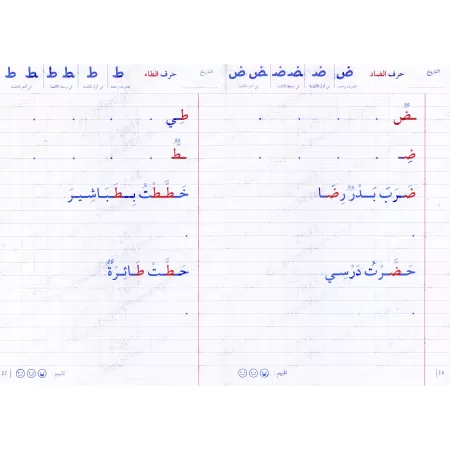 التاريخ حرف الضاد ض ضـ ـضـ ـضـ ـض ض
الحرف وحده في أول الكلمة في وسط الكلمة في آخر الكلمة
ـضٌّ . . . .
ضِـ . . . .
ضَرَبَ بَـدْرٌ رِضَـا
.
حَـضَّـرْتُ دَرْسِـي
.
تقييم :
التاريخ حرف الطاء ط ط ط ـط ـط ط
الحرف وحده في أول الكلمة في وسط الكلمة في آخر الكلمة
طِـي . . . .
ـطٌّ . . . .
خَـطَّـطْـتُ بِـطَـبَـاشِـيـرَ
.
حَـطَّـتْ طَـائِـرَةٌ
.
تقييم : 27